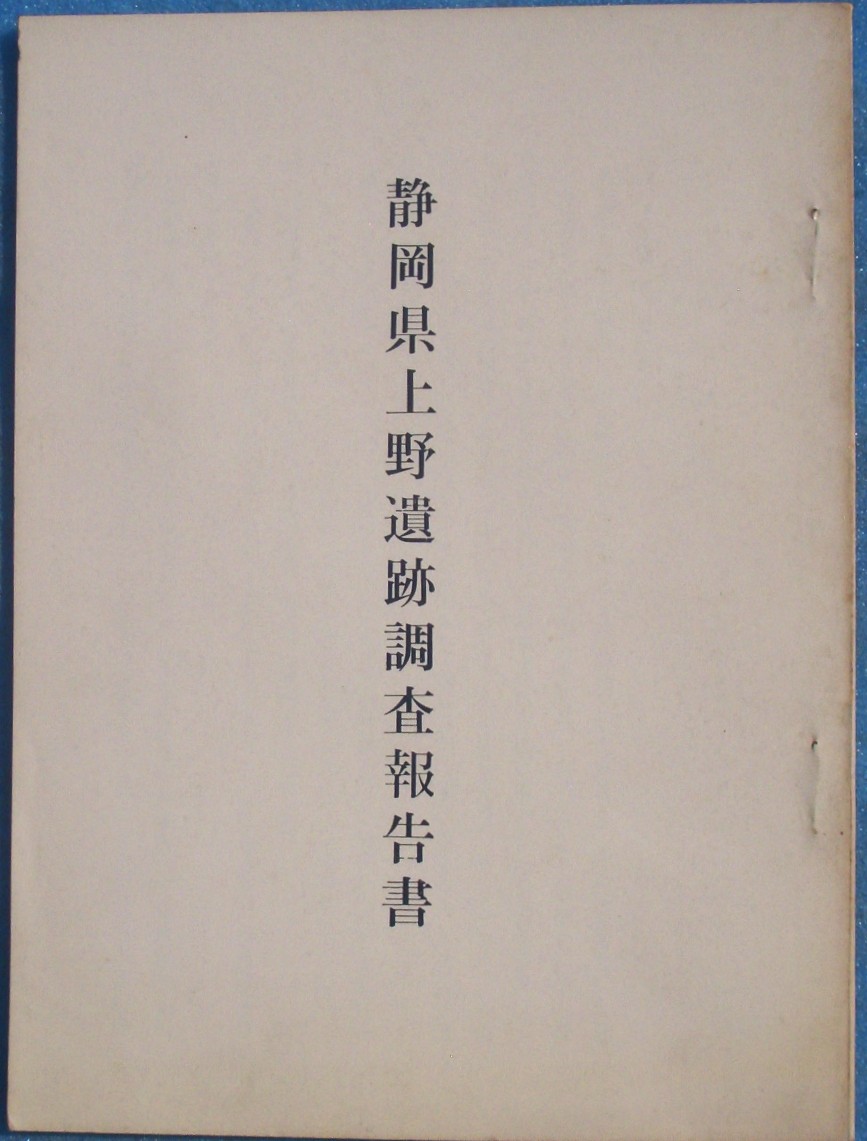 静岡県上野遺跡調査報告書